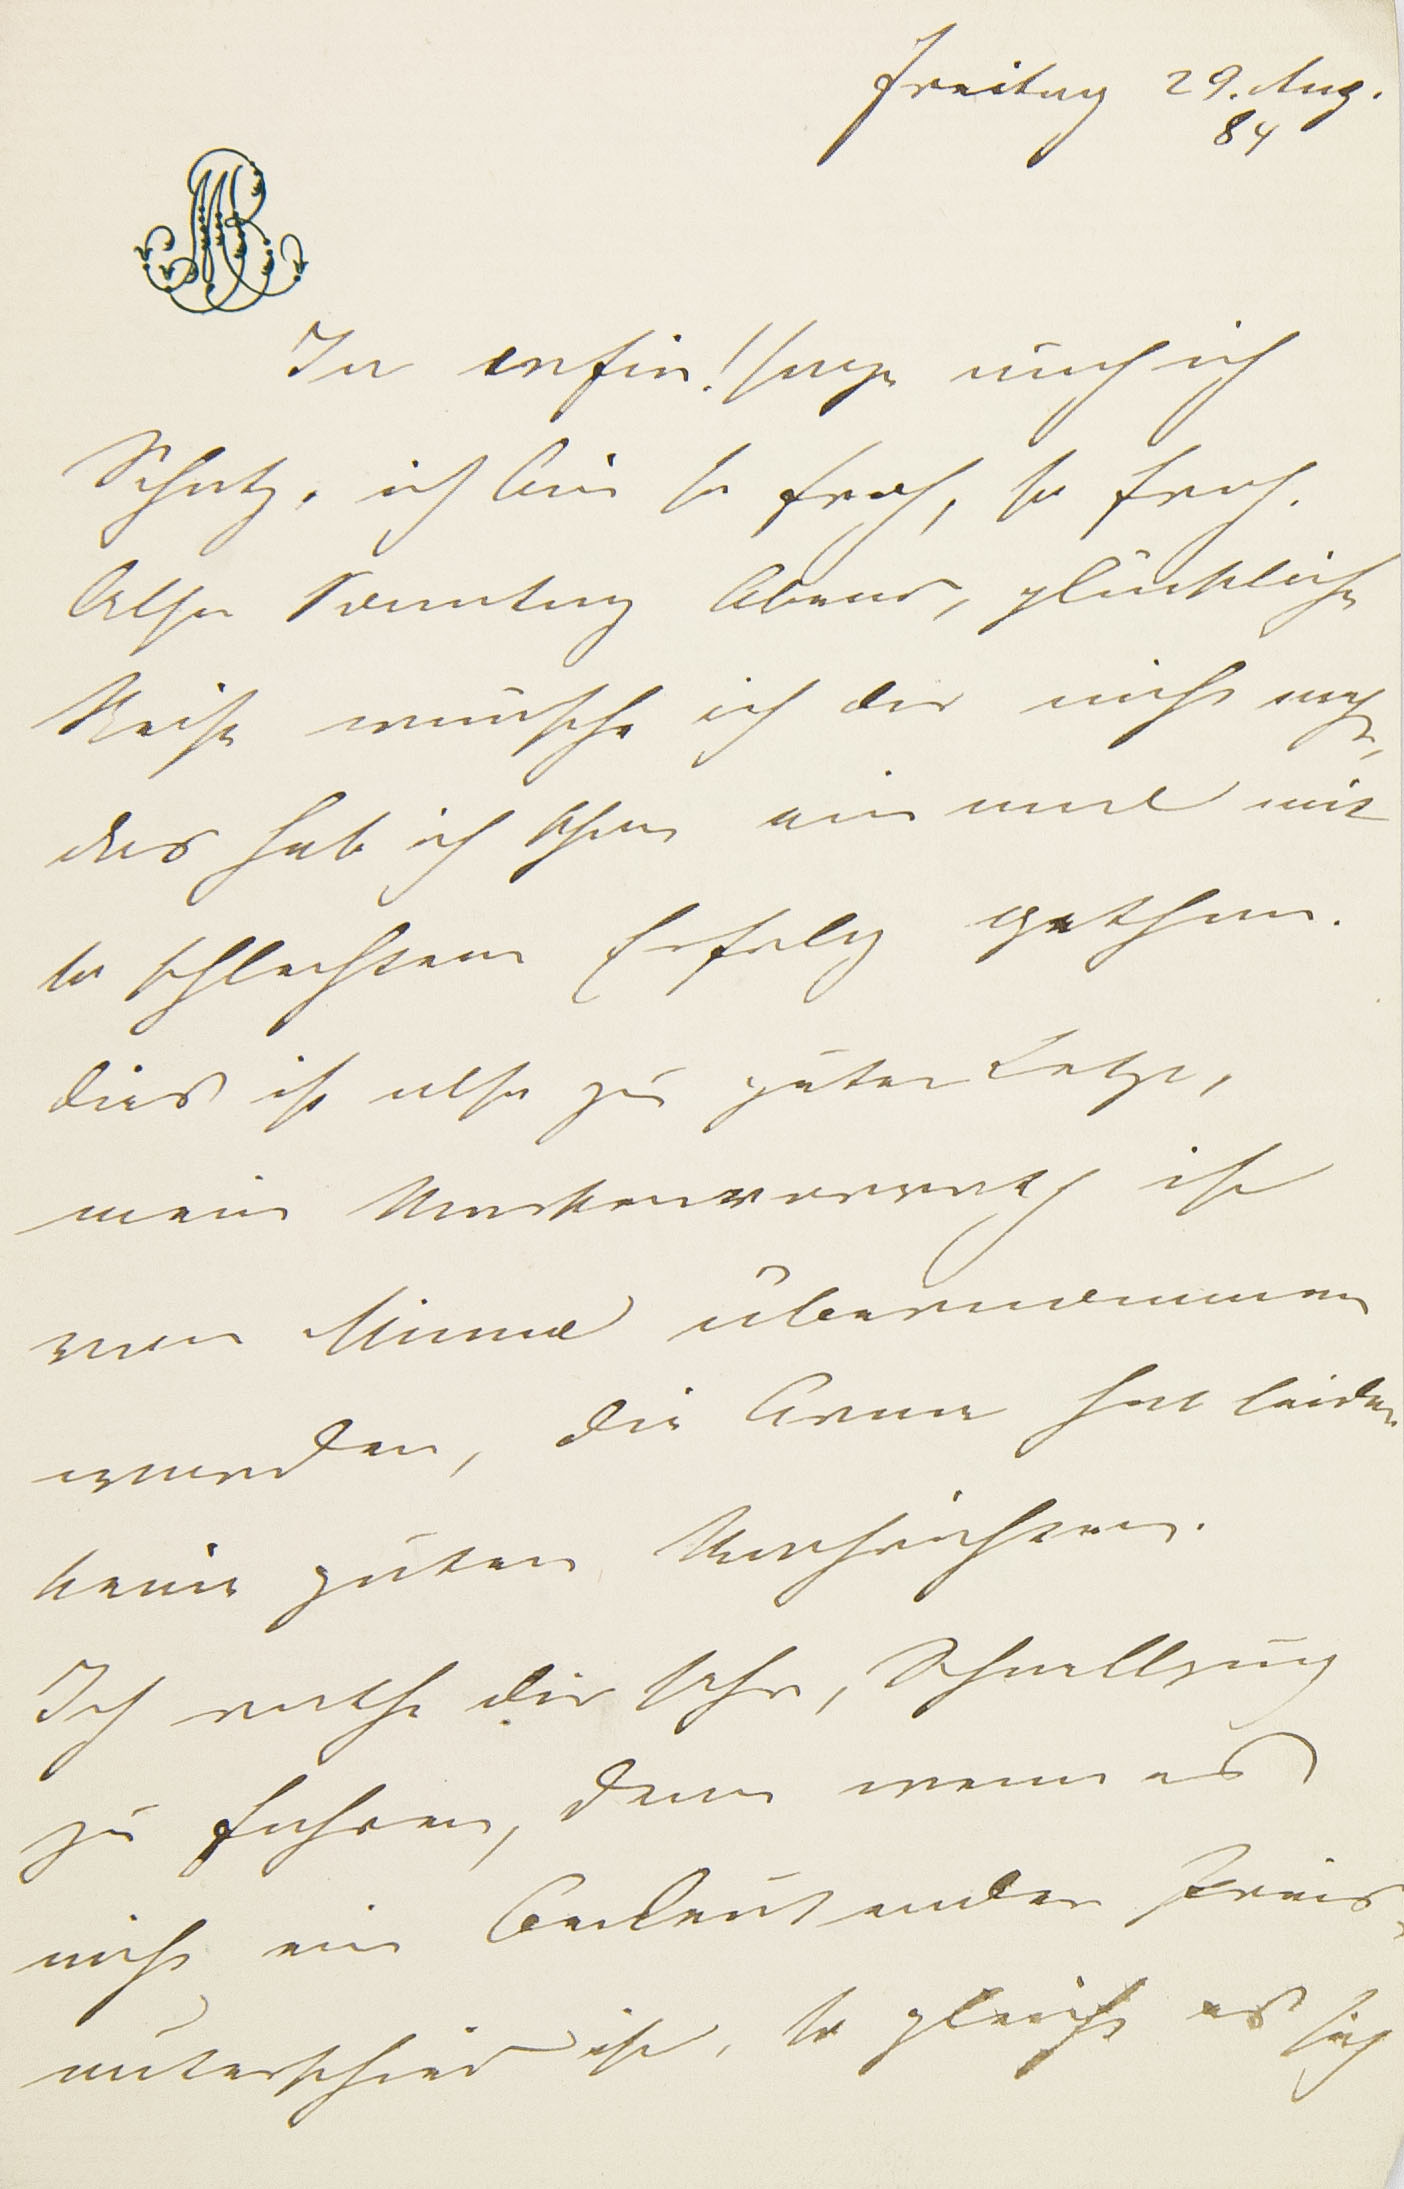 Freitag 29. Aug.
84
MB
Ja enfin! sage auch ich
Schatz, ich bin so froh, so froh.
Also Sonntag Abend, glückliche
Reise wünsche ich dir nicht mehr,
das hab ich schon ein mal mit
so schlechtem Erfolg gethan.
Dies ist also zu guter Letzt,
mein Markenvorrath ist
von Minna übernommen
worden, die Arme hat leider
keine guten Nachrichten.
Ich rathe dir sehr, Schnellzug
zu fahren, denn wenn es
nicht ein bedeutender Preis-
unterschied ist, so gleicht es sich